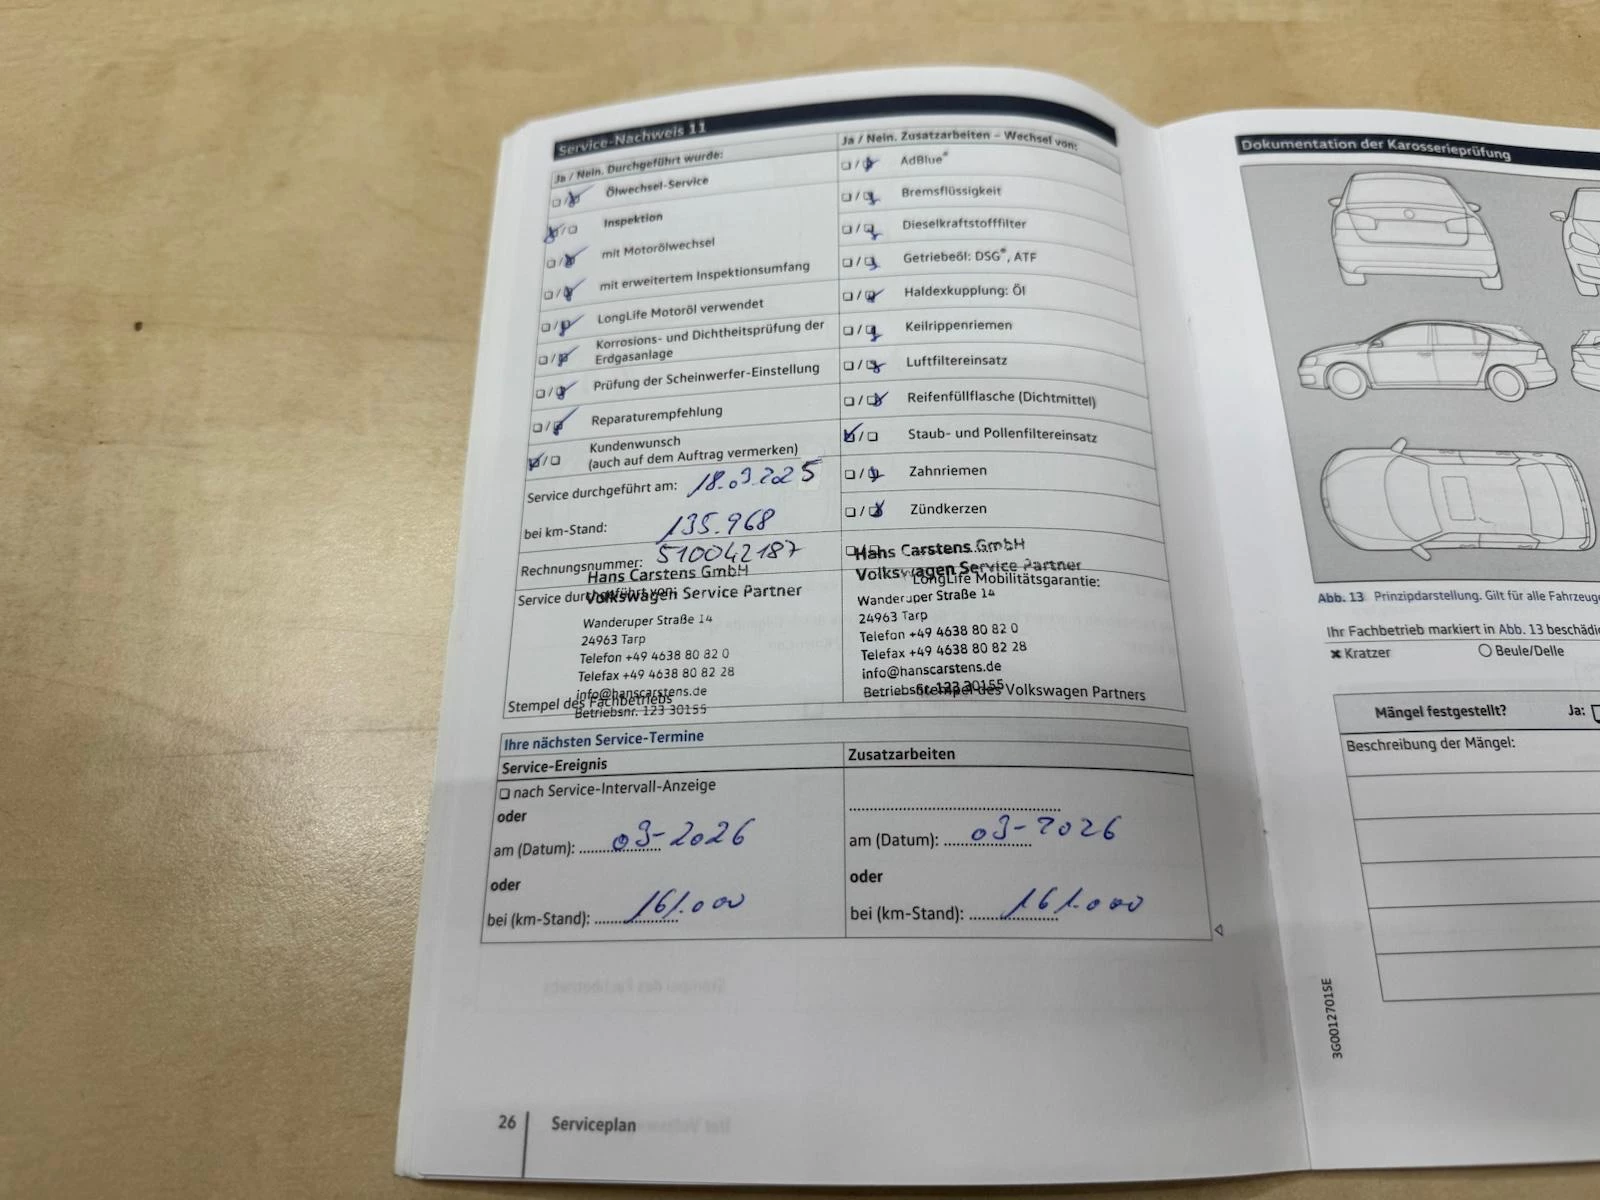 Service-Nachweis 11
Ja / Nein. Durchgeführt wurde:
Ölwechsel-Service
Inspektion
mit Motorölwechsel
mit erweitertem Inspektionsumfang
LongLife Motoröl verwendet
Korrosions- und Dichtheitsprüfung der
Erdgasanlage
Prüfung der Scheinwerfer-Einstellung
Reparaturempfehlung
Kundenwunsch
(auch auf dem Auftrag vermerken)
Service durchgeführt am: 18.03.2025
bei km-Stand: 135.968
Rechnungsnummer: 510042187
Service durchgeführt von:
Hans Carstens GmbH
Volkswagen Service Partner
Wanderuper Straße 14
24963 Tarp
Telefon +49 4638 80 82 0
Telefax +49 4638 80 82 28
info@hanscarstens.de
Betriebsnr. 123 30155
Stempel des Fachbetriebs
Ja / Nein. Zusatzarbeiten – Wechsel von:
AdBlue®
Bremsflüssigkeit
Dieselkraftstofffilter
Getriebeöl: DSG®, ATF
Haldexkupplung: Öl
Keilrippenriemen
Luftfiltereinsatz
Reifenfüllflasche (Dichtmittel)
Staub- und Pollenfiltereinsatz
Zahnriemen
Zündkerzen
Hans Carstens GmbH
Volkswagen Service Partner
LongLife Mobilitätsgarantie:
Wanderuper Straße 14
24963 Tarp
Telefon +49 4638 80 82 0
Telefax +49 4638 80 82 28
info@hanscarstens.de
Betriebsnr. 123 30155
Stempel des Volkswagen Partners
Ihre nächsten Service-Termine
Service-Ereignis
nach Service-Intervall-Anzeige
oder
am (Datum): 03-2026
oder
bei (km-Stand): 161.000
Zusatzarbeiten
am (Datum): 03-2026
oder
bei (km-Stand): 161.000
26 Serviceplan
Dokumentation der Karosserieprüfung
Abb. 13 Prinzipdarstellung. Gilt für alle Fahrzeuge
Ihr Fachbetrieb markiert in Abb. 13
Kratzer
Beule/Delle
Mängel festgestellt? Ja:
Beschreibung der Mängel:
3G0012701SE